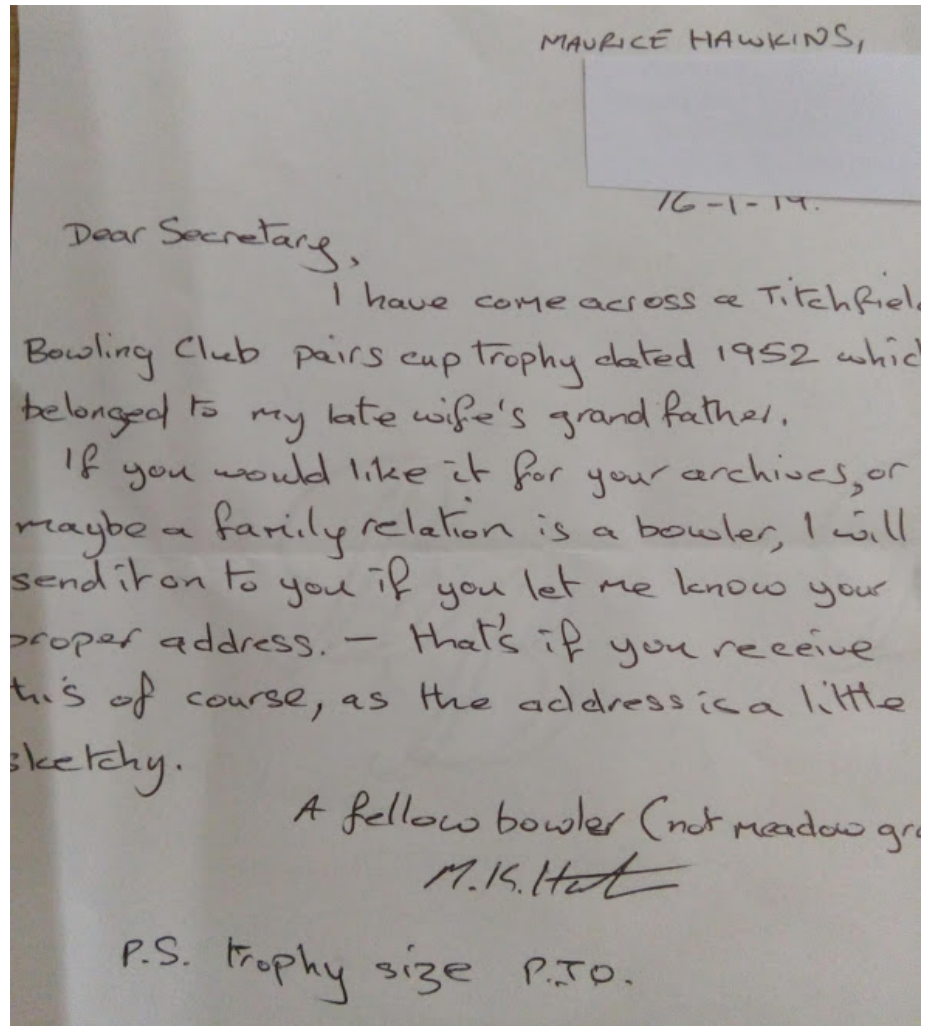 MAURICE HAWKINS,
16-1-19.
Dear Secretary,
I have come across a Titchfiel
Bowling Club pairs cup trophy dated 1952 whic
belonged to my late wife's grand father.
If you would like it for your archives, or
maybe a family relation is a bowler, I will
send it on to you if you let me know your
proper address. – that's if you receive
this of course, as the address is a little
sketchy.
A fellow bowler (not meadow gr
M.K.
P.S. trophy size P.T.O.